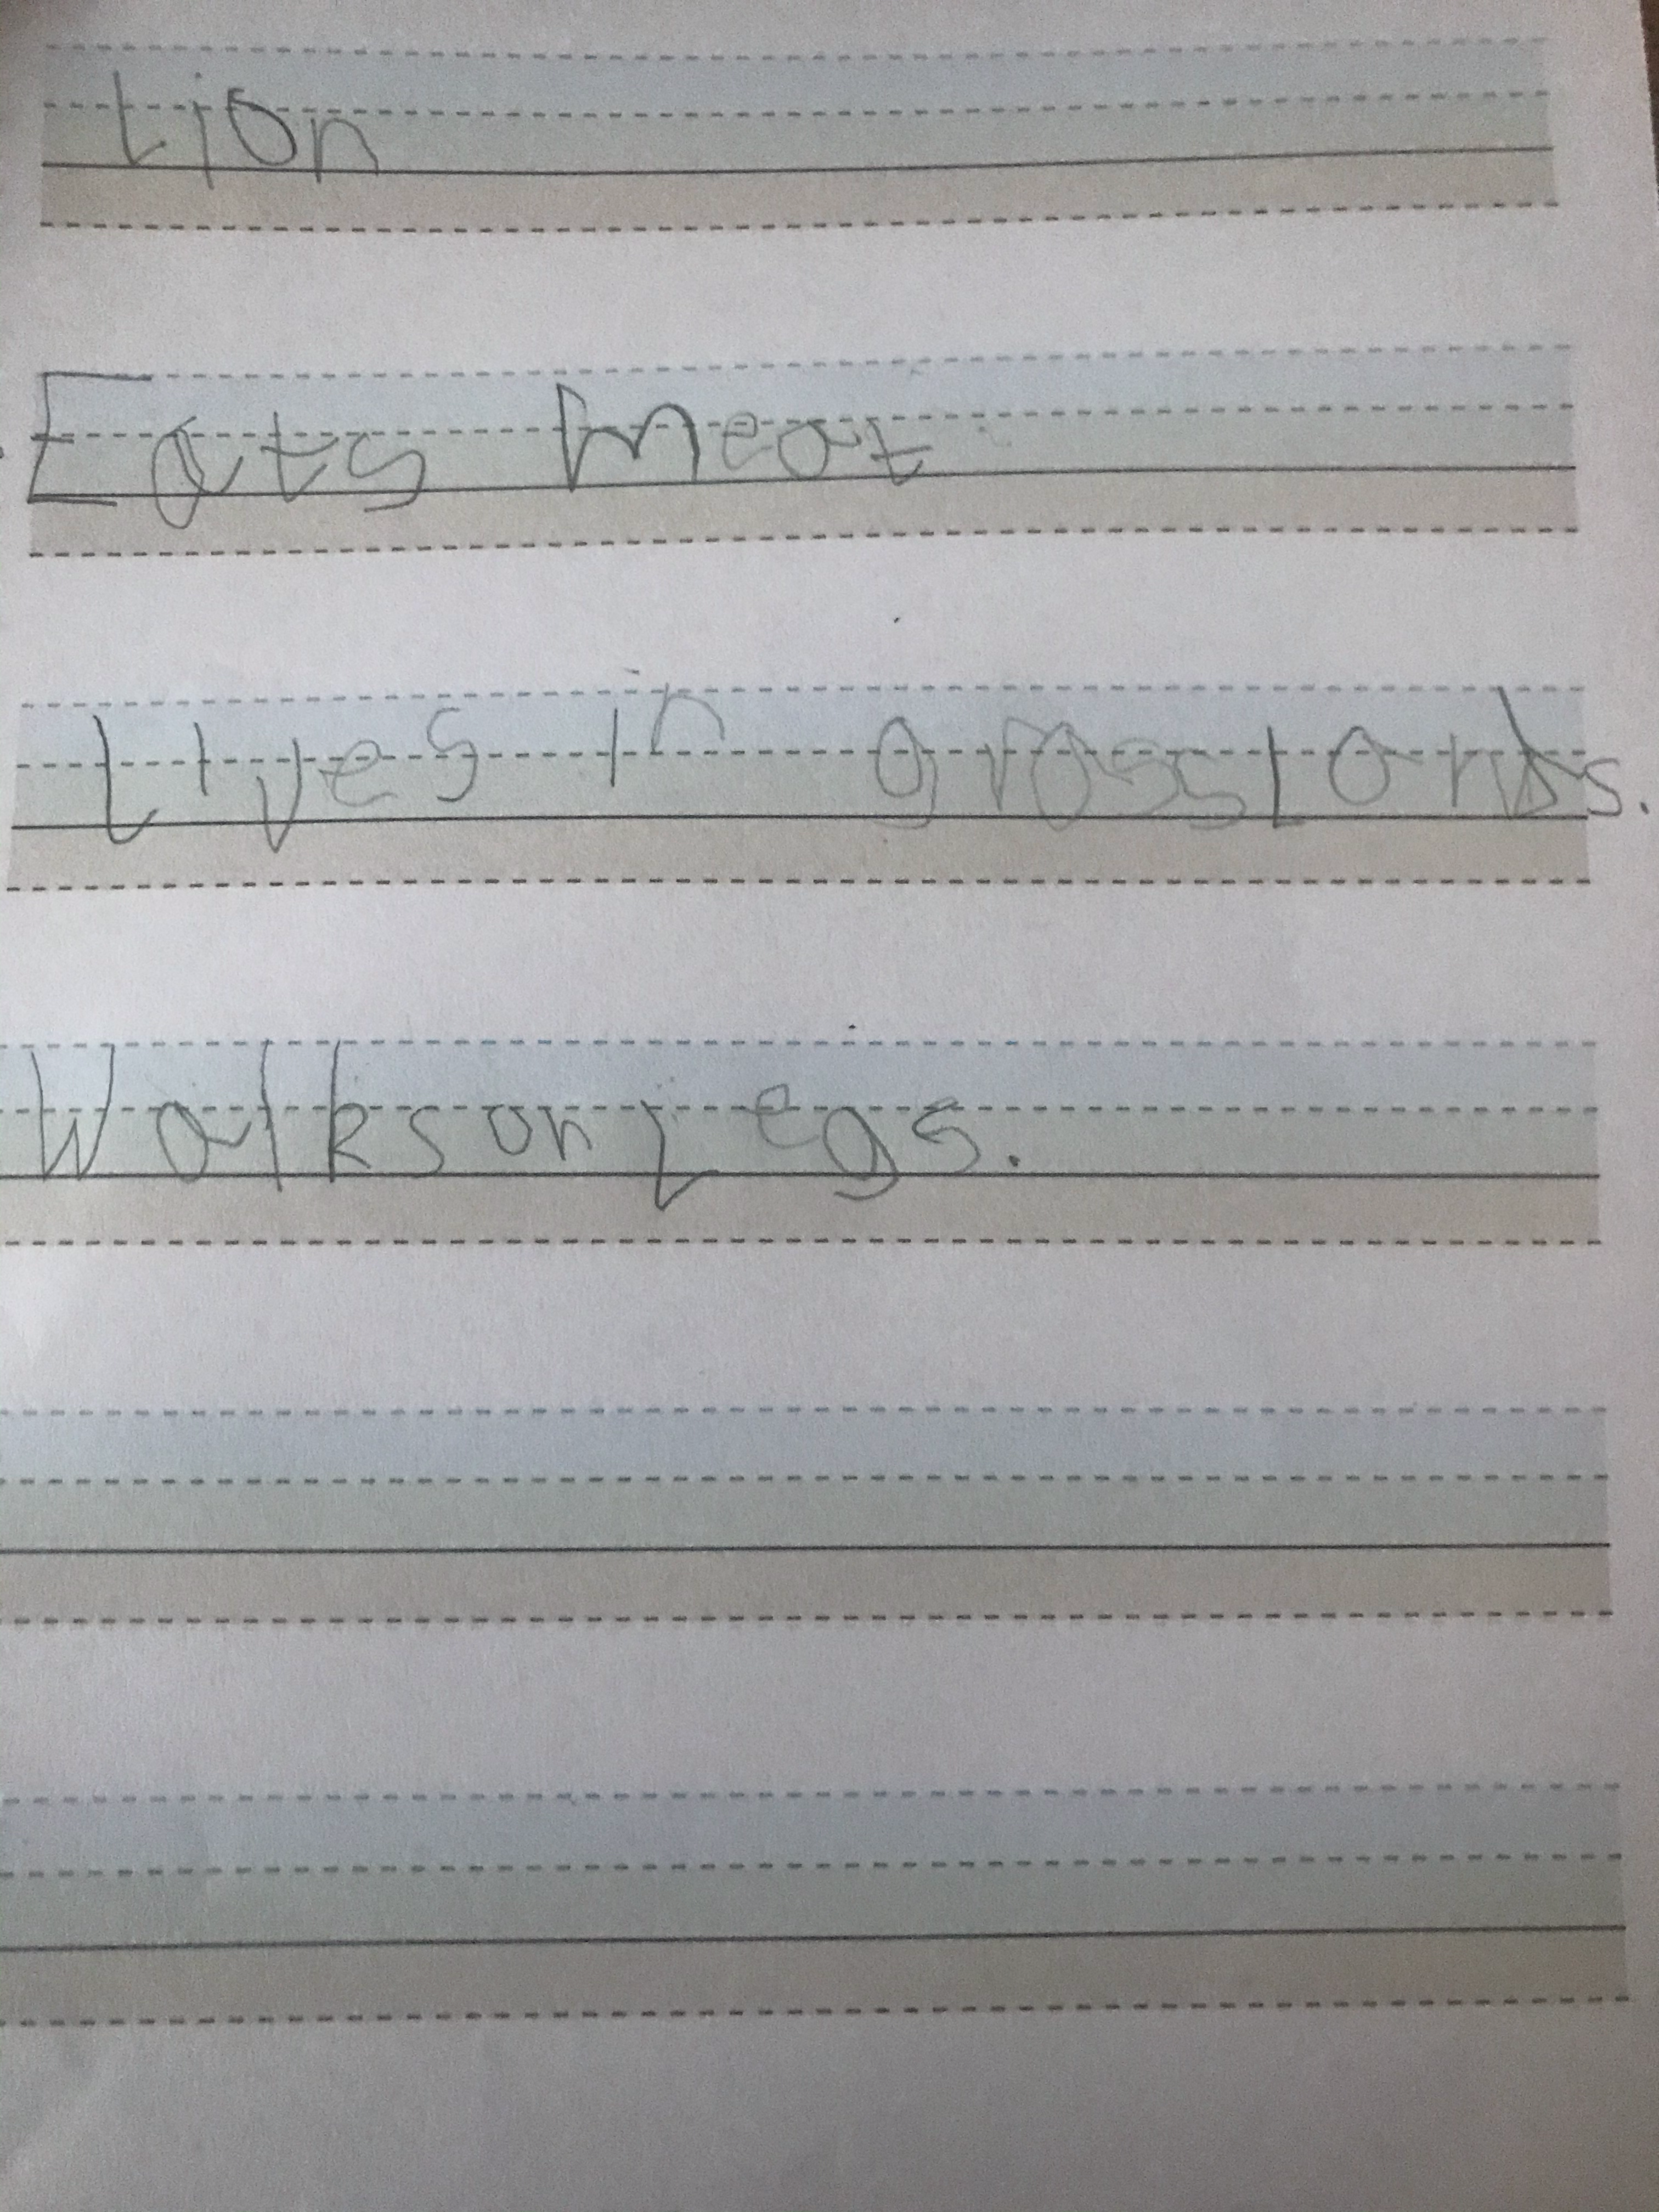 Lion
Eats meat
Lives in grasslands.
Walks on Legs.